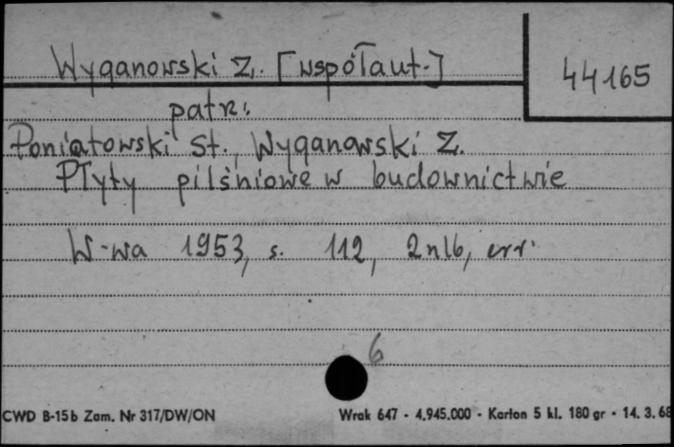 Wyganowski Z. [współaut.]
44165
patrz:
Poniatowski St., Wyganowski Z.
Płyty pilśniowe w budownictwie
W-wa 1953, s. 112, 2nlb, err.
6
CWD B-15b Zam. Nr 317/DW/ON
Wrak 647 - 4.945.000 - Karton 5 kl. 180 gr - 14. 3. 68